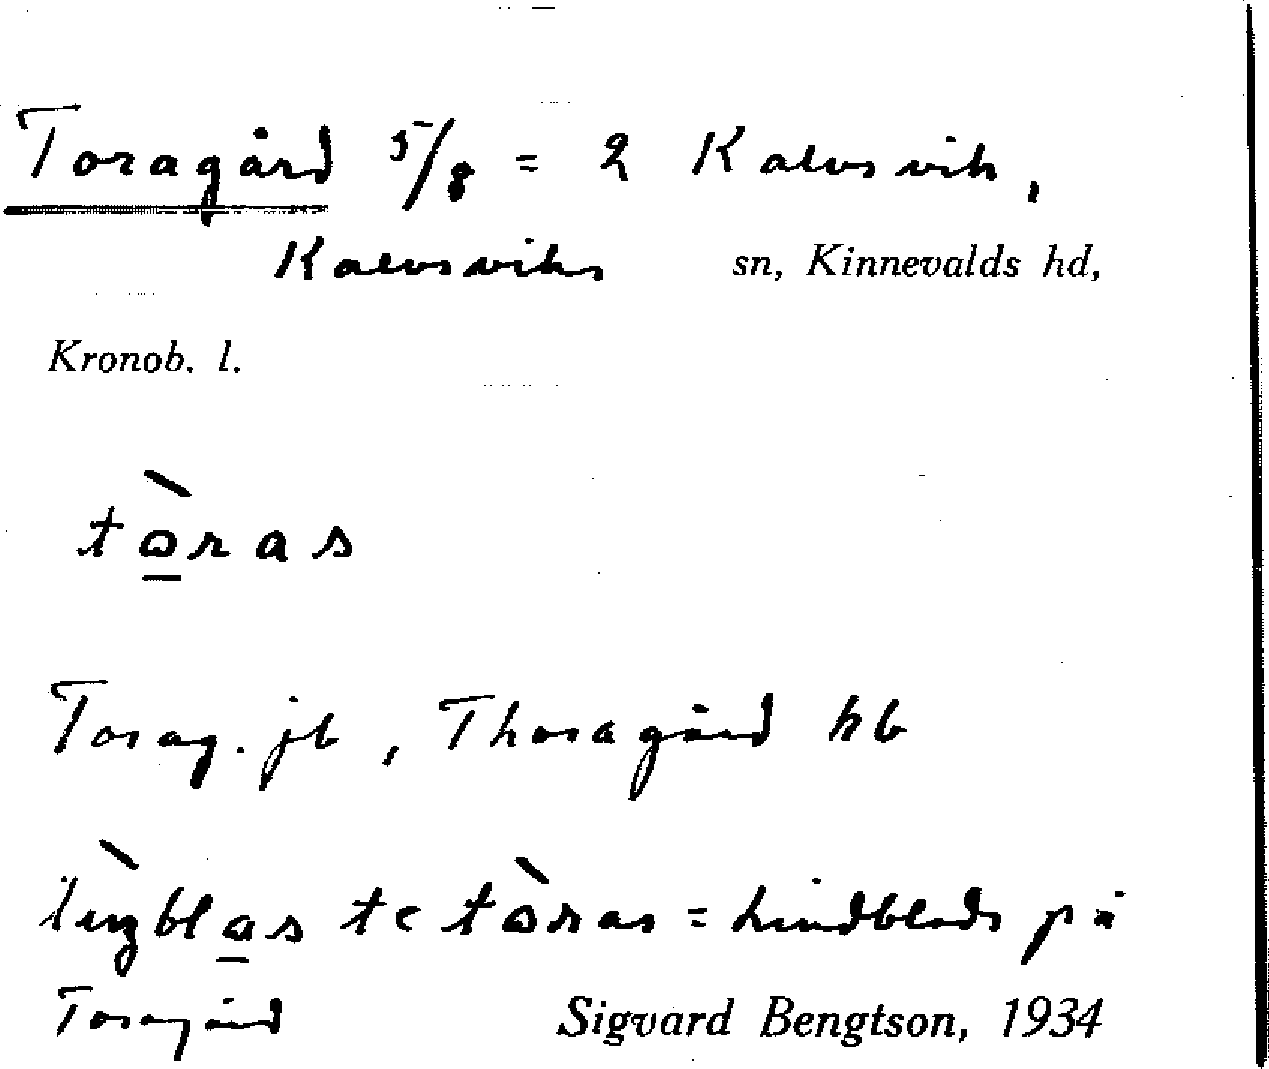 Toragård 5/8 = 2 Kalvsvik,
Kalvsviks sn, Kinnevalds hd,
Kronob. l.
tòras
Torag. jb, Thoragård hb
te tòras = Lindblads på
Toragård Sigvard Bengtson, 1934